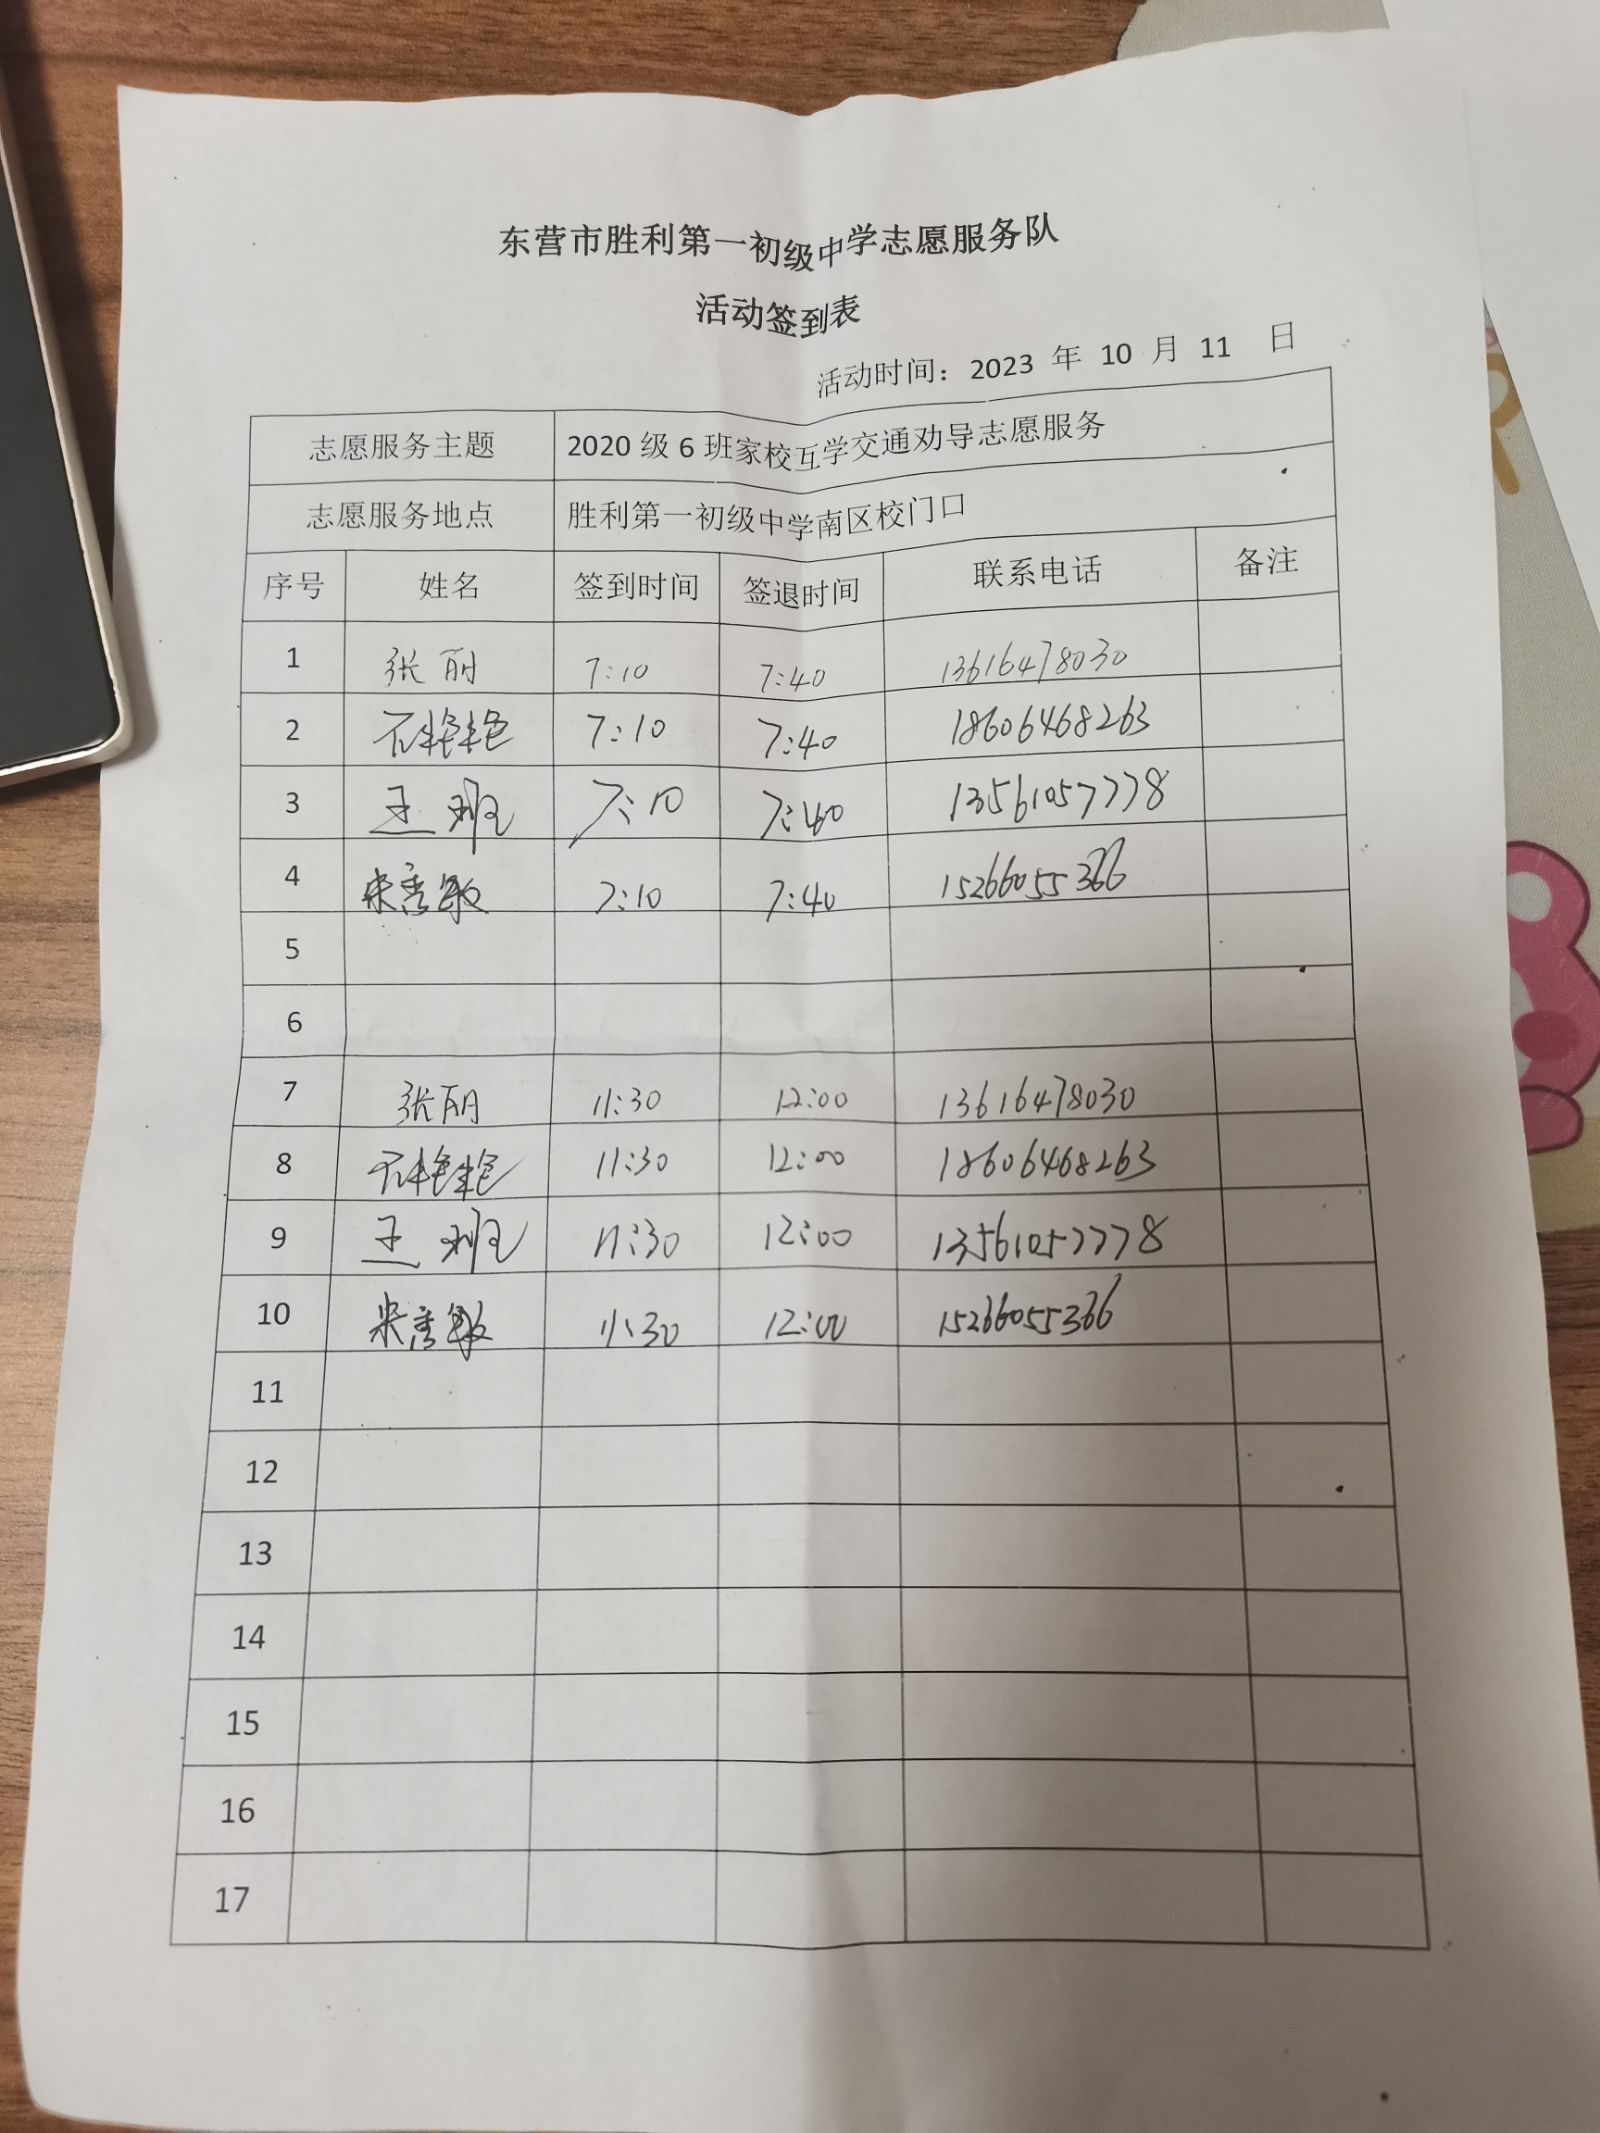 东营市胜利第一初级中学志愿服务队
活动签到表
活动时间：2023 年 10 月 11 日
志愿服务主题 2020 级 6 班家校互学交通劝导志愿服务
志愿服务地点 胜利第一初级中学南区校门口
序号 姓名 签到时间 签退时间 联系电话 备注
1 张丽 7:10 7:40 13616478030
2 石艳艳 7:10 7:40 18606468263
3 王班 7:10 7:40 13561057778
4 宋秀敏 7:10 7:40 15266055366
5
6
7 张丽 11:30 12:00 13616478030
8 石艳艳 11:30 12:00 18606468263
9 王班 11:30 12:00 13561057778
10 宋秀敏 11:30 12:00 15266055366
11
12
13
14
15
16
17